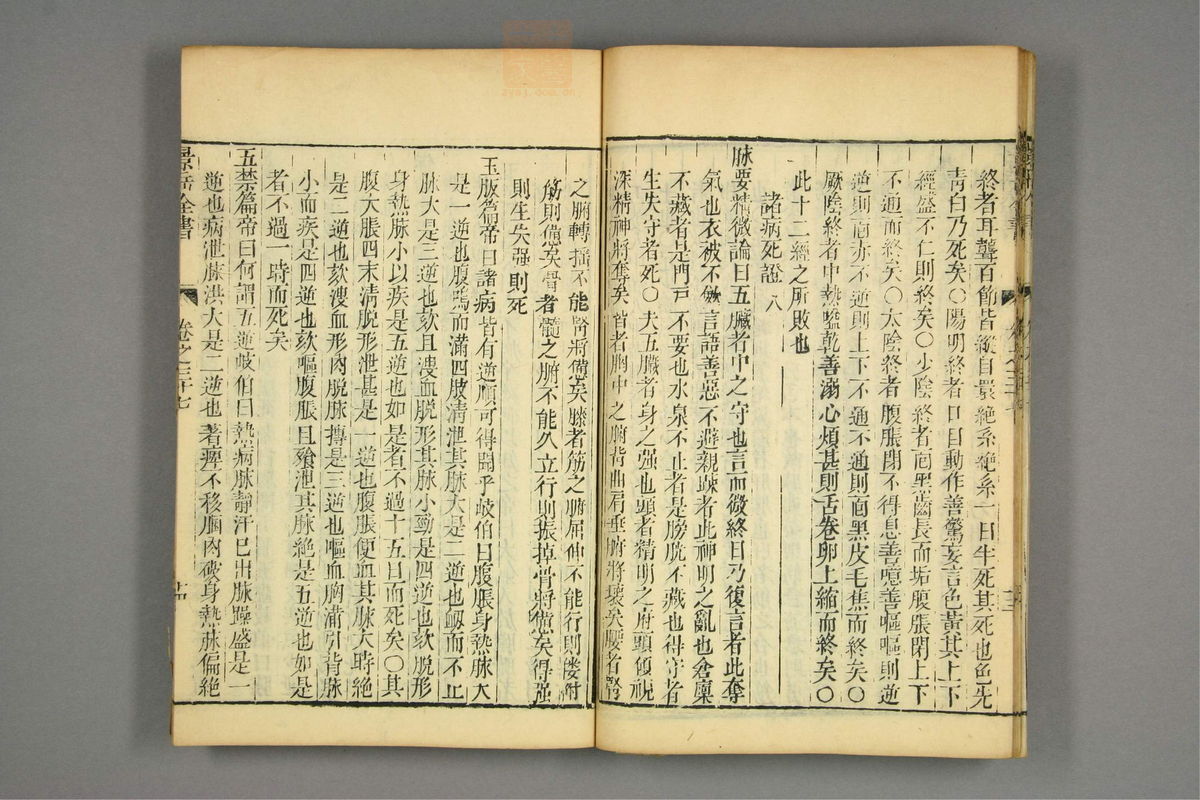 終者耳聾百節皆縱目睘絕系絕系一日半死其死也色先
青白乃死矣○陽明終者口目動作善驚妄言色黃其上下
經盛不仁則終矣○少陰終者面黑齒長而垢腹脹閉上下
不通而終矣○太陰終者腹脹閉不得息善噫善嘔嘔則逆
逆則面赤不逆則上下不通不通則面黑皮毛焦而終矣○
厥陰終者中熱嗌乾善溺心煩甚則舌卷卵上縮而終矣○
此十二經之所敗也
諸病死證 八
脉要精微論曰五臟者中之守也言而微終日乃復言者此奪
氣也衣被不斂言語善惡不避親疎者此神明之亂也倉廩
不藏者是門戸不要也水泉不止者是膀胱不藏也得守者
生失守者死○夫五臟者身之强也頭者精明之府頭傾視
深精神將奪矣背者胸中之腑背曲肩垂腑將壞矣腰者腎
之腑轉摇不能腎將憊矣膝者筋之腑屈伸不能行則僂附
筋則憊矣骨者髓之腑不能久立行則振掉骨將憊矣得强
則生失强則死
玉版篇帝曰諸病皆有逆順可得聞乎岐伯曰腹脹身熱脉大
是一逆也腹鳴而滿四肢清泄其脉大是二逆也衂而不止
脉大是三逆也欬且溲血脱形其脉小勁是四逆也欬脱形
身熱脉小以疾是五逆也如是者不過十五日而死矣○其
腹大脹四末清脱形泄甚是一逆也腹脹便血其脉大時絕
是二逆也欬溲血形肉脱脉搏是三逆也嘔血胸滿引背脉
小而疾是四逆也欬嘔腹脹且飱泄其脉絕是五逆也如是
者不過一時而死矣
五禁篇帝曰何謂五逆岐伯曰熱病脉靜汗已出脉躁盛是一
逆也病泄脉洪大是二逆也著痺不移䐃肉破身熱脉偏絕
景岳全書
卷之三十七
十四